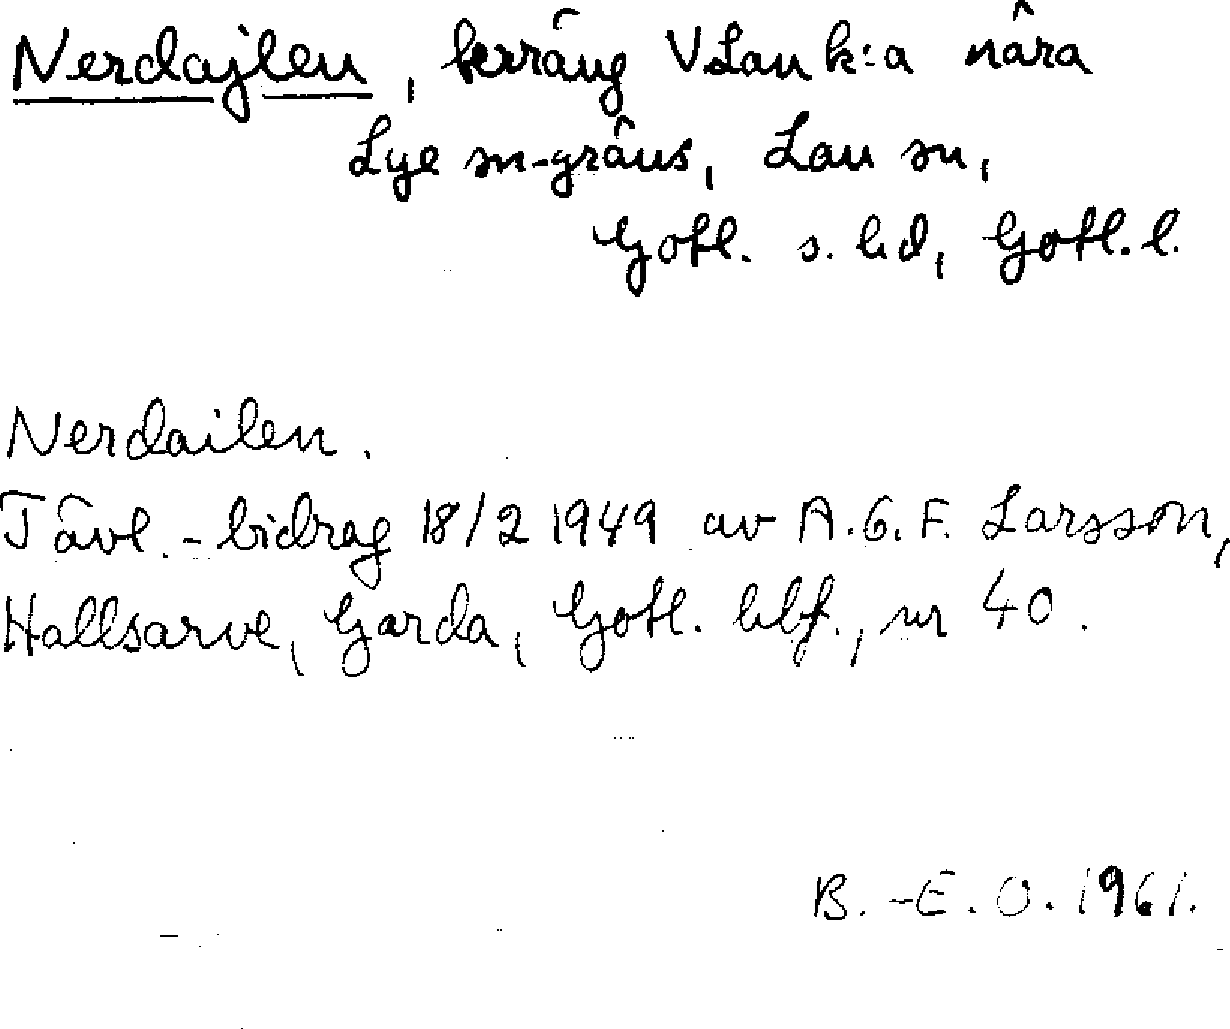 Nerdajlen, terräng V Lau k:a nära
Lye sn-gräns, Lau sn,
Gotl. s. hd, Gotl. l.
Nerdailen.
Tävl.-bidrag 18/2 1949 av A.G.F. Larsson,
Hallsarve, Garda, Gotl. hbf., nr 40.
B.-E.O. 1961.